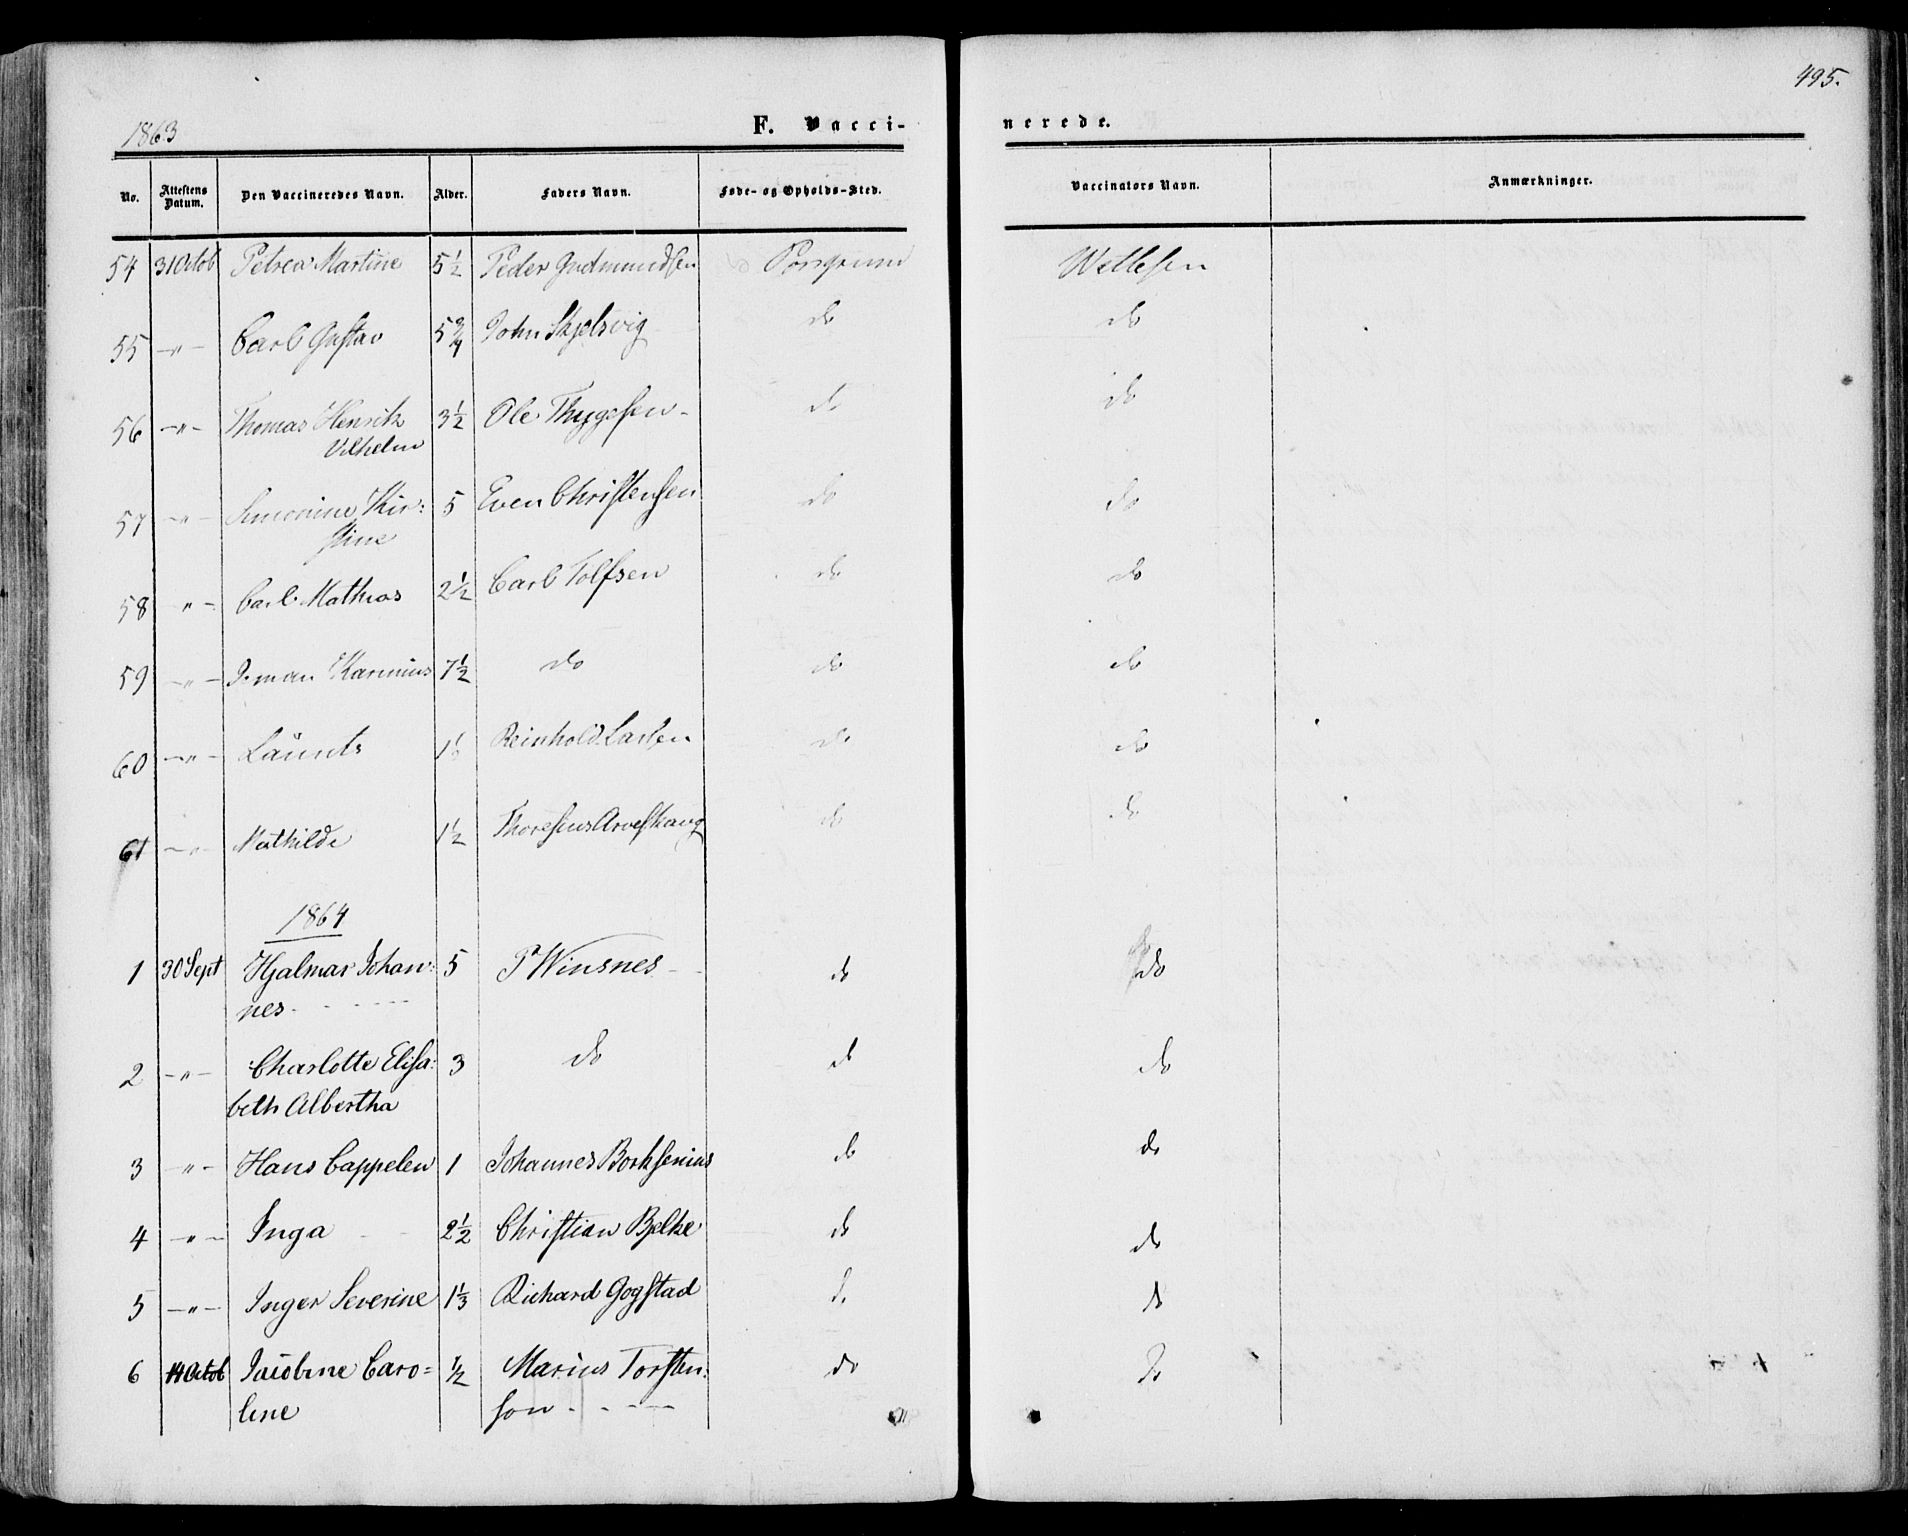 495.
1863
F. Vacci-
nerede.
No. Attestens Datum. Den Vaccineredes Navn. Alder. Faders Navn. Føde- og Opholds-Sted. Vaccinators Navn. Anmærkninger.
54 31 Octob Petrea Martine 5½ Peder Gudmundsen Porsgrund Wettesen
55 -"- Carl Gustav 5¾ John Skjelsvig do do
56 -"- Thomas Henrik 3½ Ole Thygesen do do
Vilhelm
57 -"- Kir: 5 Even Christensen do do
stine
58 "- Carl Mathias 2½ Carl Tolfsen do do
59 -"- Karinius 7½ do do do
60 -"- Laurits Reinhold Larsen do do
61 -"- Mathilde 1½ do do
1864
1 30 Sept Hjalmar Johan: 5 P Winsnes do do
nes
2 -"- Charlotte Elisa: 3 do do do
beth Albertha
3 -"- Hans Cappelen 1 Johannes Borksenius do do
4 -"- Inga 2½ Christian Bjelke do do
5 -"- Inger Severine 1⅓ Richard Gogstad do do
6 14 Octob Jacobine Caro= ½ Marius Torsten: do do
line son